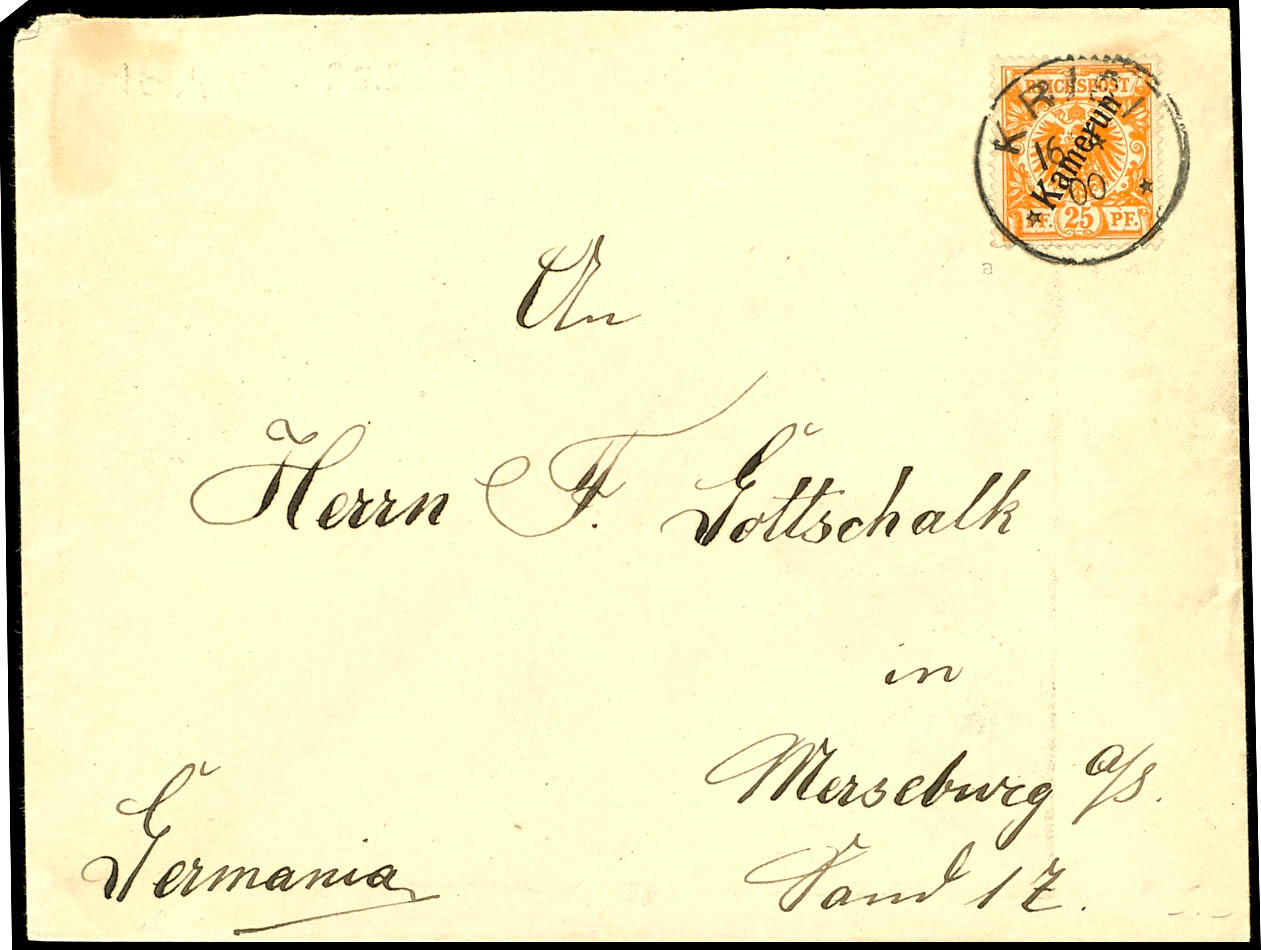 REICHSPOST
Kamerun
KRIBI
16
00
25 PF.
a
An
Herrn F. Gottschalk
in
Merseburg a/S.
Sand 17.
Germania